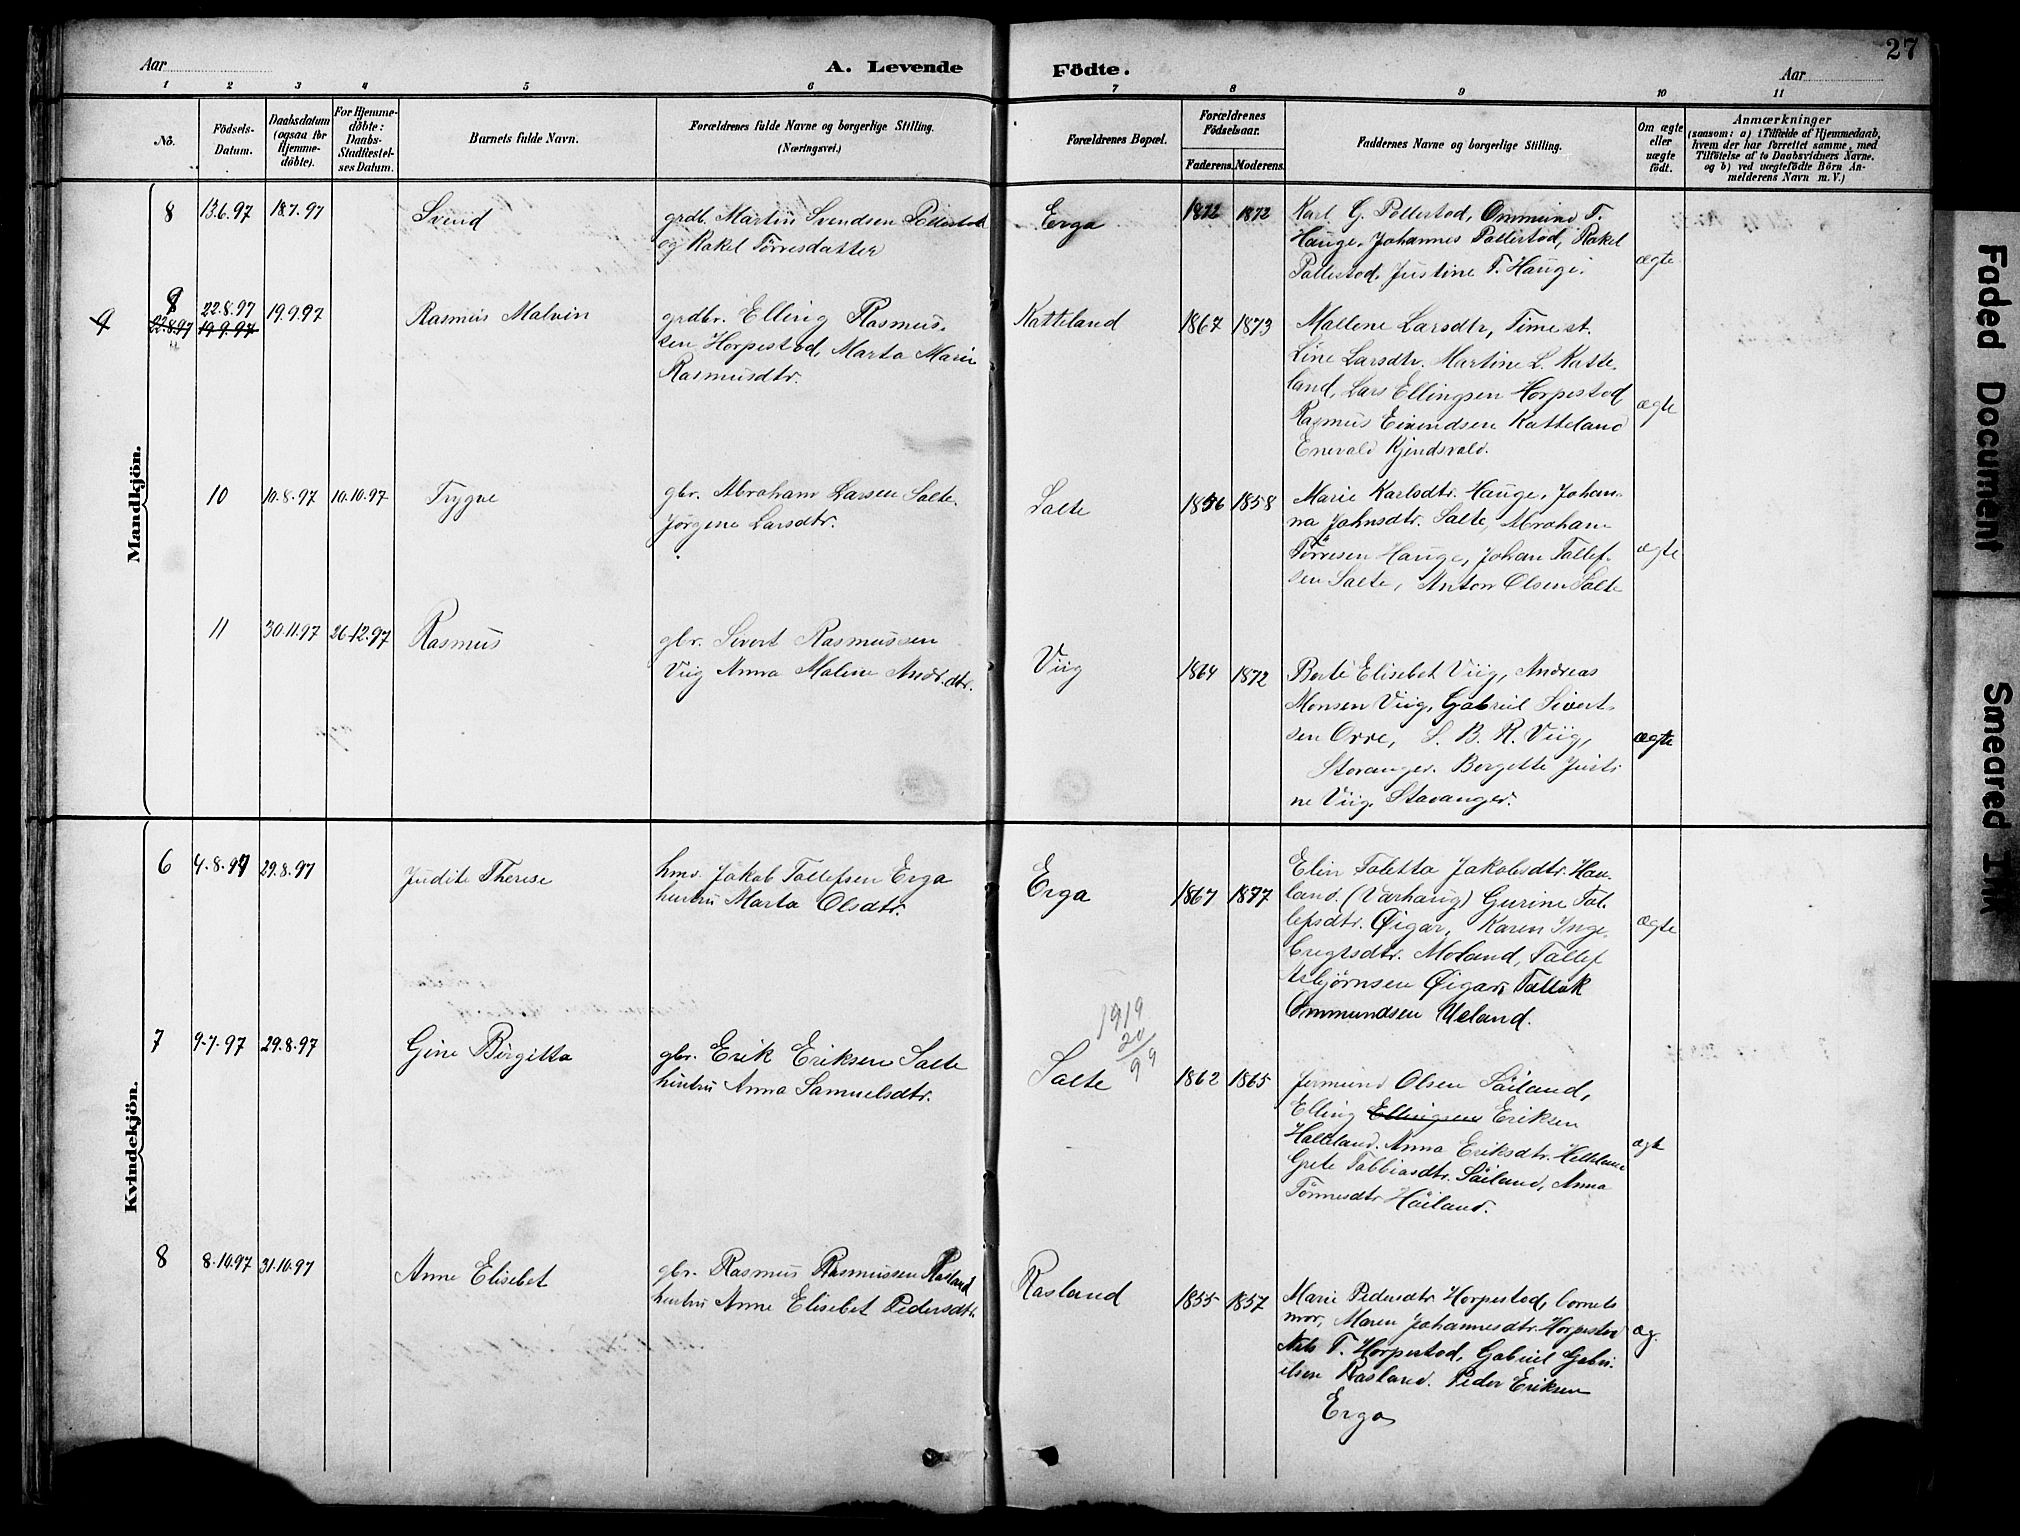 27
Aar
A. Levende
Födte.
Aar
1 2 3 4 5 6 7 8 9 10 11
No.
Födsels-
Datum.
Daabsdatum
(ogsaa for
Hjemme-
döbte).
For Hjemme-
döbte:
Daabs-
Stadfæstel-
ses Datum.
Barnets fulde Navn.
Forældrenes fulde Navne og borgerlige Stilling.
(Næringsvei.)
Forældrenes Bopæl.
Forældrenes
Födselsaar.
Faderens.
Moderens.
Faddernes Navne og borgerlige Stilling.
Om ægte
eller
uægte
født.
Anmærkninger
(saasom: a) i Tilfælde af Hjemmedaab,
hvem der har forrettet samme, med
Tilföielse af to Daabsvidners Navne.
og b) ved uægtefödte Börn An-
melderens Navn m. V.)
Mandkjön.
8 13.6.97 18.7.97
Svend
grdb. Martin Svendsen Pollestad
og Rakel Tørresdatter
Erga
1872 1872
Karl G. Pollestad, Ommund T.
Hauge, Johannes Pollestad, Rakel
Pollestad, Justine T. Hauge.
ægte
9
9
22.8.97
22.8.97
19.9.97
19.9.97
Rasmus Malvin
grdbr. Elling Rasmus-
sen Horpestad, Marta Marie
Rasmusdtr.
Katteland
1867 1873
Mallene Larsdtr, Time st.
Line Larsdtr. Martine L. Katte-
land, Lars Ellingsen Horpestad
Rasmus Eivindsen Katteland
Enevald Kjendsvald.
ægte
10 10.8.97 10.10.97
Trygve
gbr. Abraham Larsen Salte.
Jørgine Larsdtr.
Salte
1856 1858
Marie Karlsdtr. Hauge, Johan-
na Johnsdtr. Salte, Abraham
Tørresen Hauge, Johan Tollef-
sen Salte, Anton Olsen Salte
ægte
11 30.11.97 26.12.97
Rasmus
gbr. Sivert Rasmussen
Viig Anna Maline Andr.dtr.
Viig
1864 1872
Berte Elisebet Viig, Andreas
Monsen Viig, Gabriel Sivert-
sen Orre, S. B. R. Viig,
Stavanger. Borgitte Justi-
ne Viig, Stavanger.
ægte
Kvindekjön.
6 4.8.97 29.8.97
Judite Therese
hmd. Jakob Tollefsen Erga
hustru Marta Olsdtr.
Erga
1867 1877
Elin Toletta Jakobsdtr. Hau-
land. (Varhaug) Gurine Tol-
lefsdtr. Øigar, Karen Inge-
bregtsdtr. Moland, Tollef
Asbjørnsen Øigar, Tollak
Ommundsen Ueland.
ægte
7 9.7.97 29.8.97
Gine Birgitta
gbr. Erik Eriksen Salte
hustru Anna Samuelsdtr.
1919
20/9 9
Salte
1862 1865
Jermund Olsen Såiland,
Elling Ellingsen Eriksen
Halleland. Anna Eriksdtr. Helleland
Grete Tobbiasdtr. Såiland, Anna
Tønnesdtr Håiland.
ægte
8 8.10.97 31.10.97
Anne Elisebet
gbr. Rasmus Rasmussen Rasland
hustru Anne Elisebet Pedersdtr.
Rasland
1855 1857
Marie Pedersdtr. Horpestad, barnets
mor, Maren Johannesdtr. Horpestad
Nils T. Horpestad, Gabriel Gabri-
elsen Rasland. Peder Eriksen
Erga
æg.
Faded Document
Smeared Ink